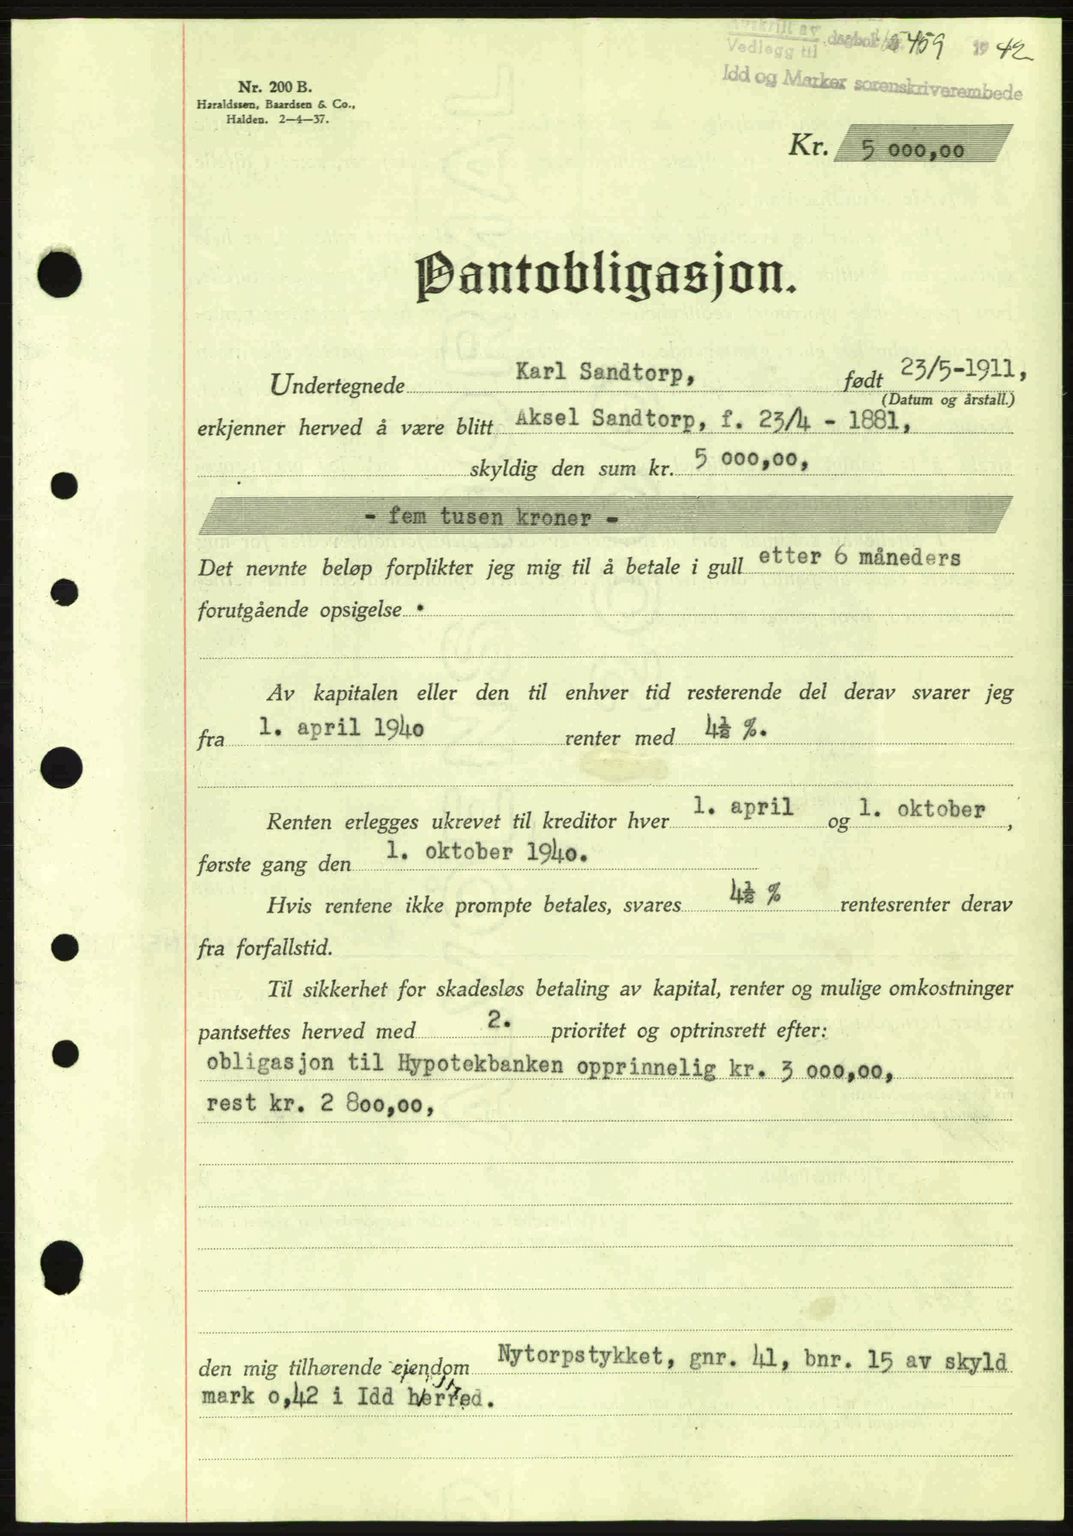 Avskrift av
Vedlegg til dagbok 459 1942
Idd og Marker sorenskriverembede
Nr. 200 B.
Haraldssen, Baardsen & Co.,
Halden. 2—4—37.
Kr. 5 000,00
Pantobligasjon.
Undertegnede Karl Sandtorp, født 23/5-1911,
(Datum og årstall.)
erkjenner herved å være blitt Aksel Sandtorp, f. 23/4 - 1881,
skyldig den sum kr. 5 000,00,
- fem tusen kroner -
Det nevnte beløp forplikter jeg mig til å betale i gull etter 6 måneders
forutgående opsigelse .
Av kapitalen eller den til enhver tid resterende del derav svarer jeg
fra 1. april 1940 renter med 4½ %.
Renten erlegges ukrevet til kreditor hver 1. april og 1. oktober ,
første gang den 1. oktober 1940.
Hvis rentene ikke prompte betales, svares 4½ % rentesrenter derav
fra forfallstid.
Til sikkerhet for skadesløs betaling av kapital, renter og mulige omkostninger
pantsettes herved med 2. prioritet og optrinsrett efter:
obligasjon til Hypotekbanken opprinnelig kr. 3 000,00,
rest kr. 2 800,00,
den mig tilhørende eiendom Nytorpstykket, gnr. 41, bnr. 15 av skyld
mark 0,42 i Idd herred.